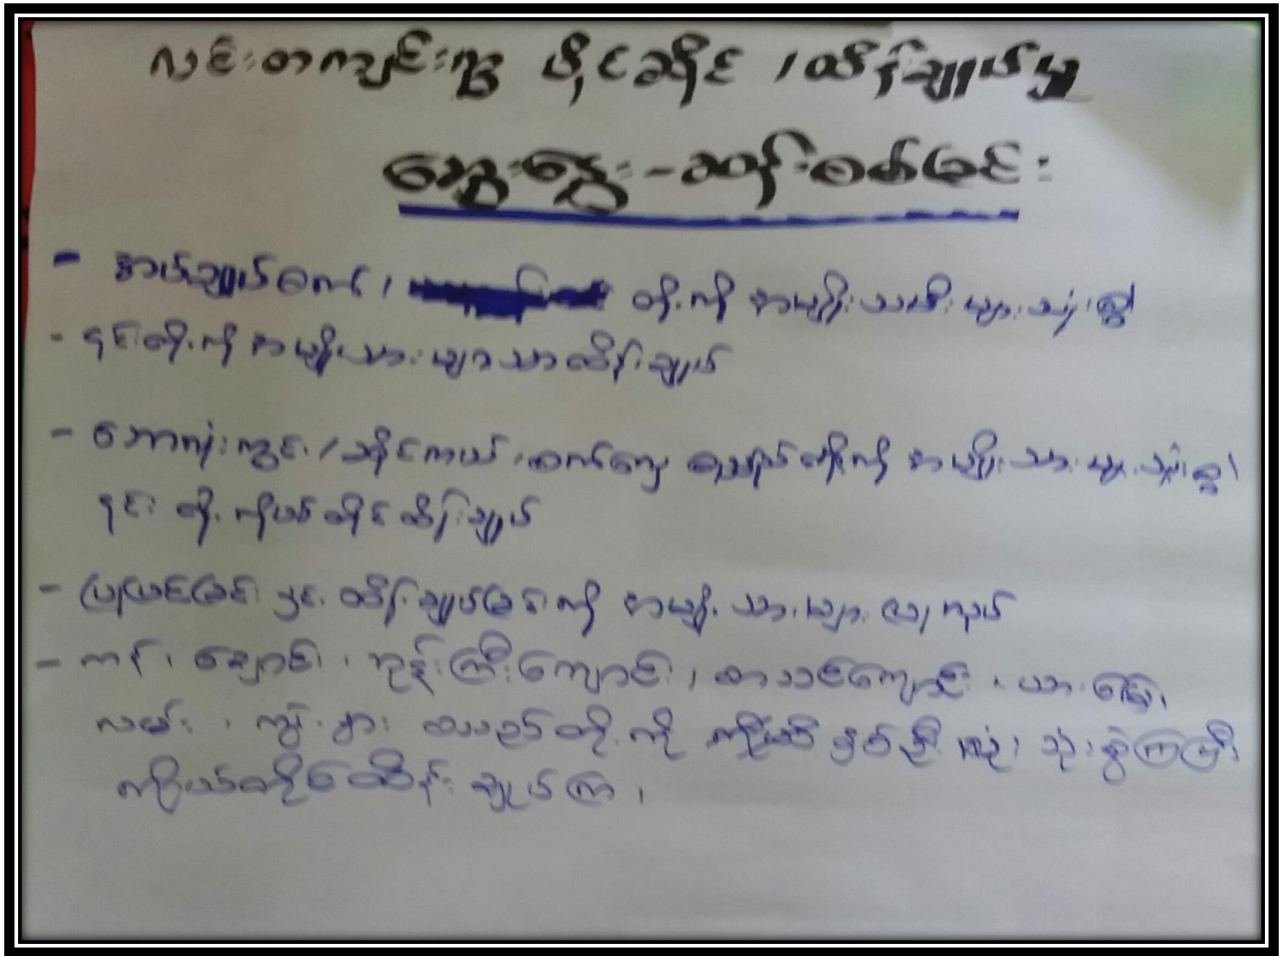 လင်းတကျင်းကျွ ပိုင်ဆိုင် / ထိန်းချုပ်မှု
ဆွေးနွေး - ဆန်းစစ်ခြင်း
- အပ်ချုပ်စက် / တို့ကို အမျိုးသမီးများသုံး၍
- ၎င်းတို့ကို အမျိုးသားများသာထိန်းချုပ်
- / ဆိုင်ကယ် / စက်လှေ စသည်တို့ကို အမျိုးသားများသုံး၍
၎င်းတို့ကိုယ်တိုင်ထိန်းချုပ်
- ပြုပြင်ခြင်းနှင့် ထိန်းချုပ်ခြင်းကို အမျိုးသားများပြုလုပ်
- ကန် ၊ ချောင်း ၊ ဘုန်းကြီးကျောင်း ၊ စာသင်ကျောင်း ၊ ယာမြေ ၊
လမ်း ၊ ကျွဲ နွား စသည်တို့ကို နှစ်ဦးလုံး သုံးစွဲကြပြီး
ကိုယ်တိုင်ထိန်းချုပ်ကြ ၊